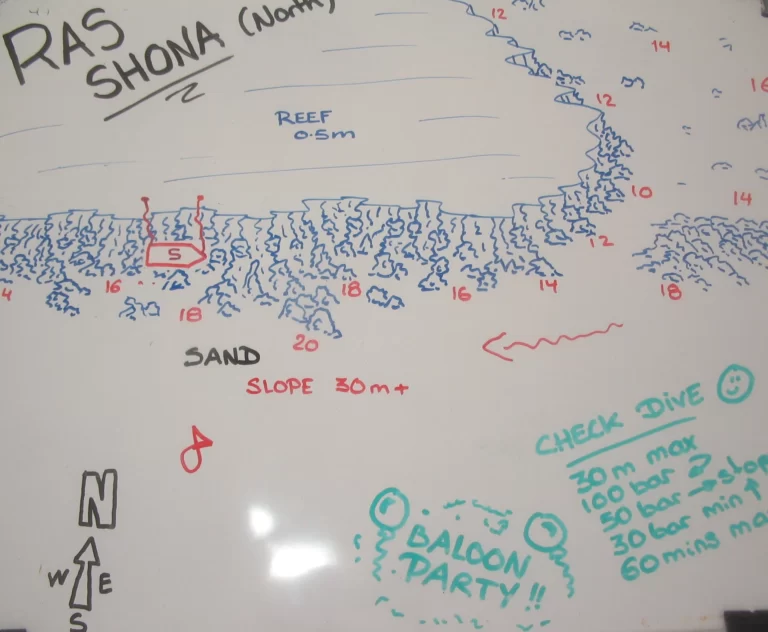 RAS
SHONA (North)
12
14
16
12
REEF
0.5m
10
14
12
S
4
16
18
18
16
14
18
20
SAND
SLOPE 30m+
CHECK DIVE
30m max
100 bar ?
50 bar → stop
30 bar min ↑
60 mins ma
BALOON
PARTY!!
N
W E
S